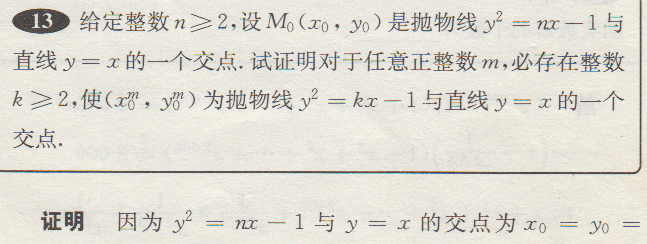 13 给定整数 n≥2,设 M₀(x₀,y₀)是抛物线 y² = nx－1 与
直线 y = x 的一个交点. 试证明对于任意正整数 m,必存在整数
k≥2,使(x₀ᵐ,y₀ᵐ)为抛物线 y² = kx－1 与直线 y = x 的一个
交点.
证明 因为 y² = nx － 1 与 y = x 的交点为 x₀ = y₀ =